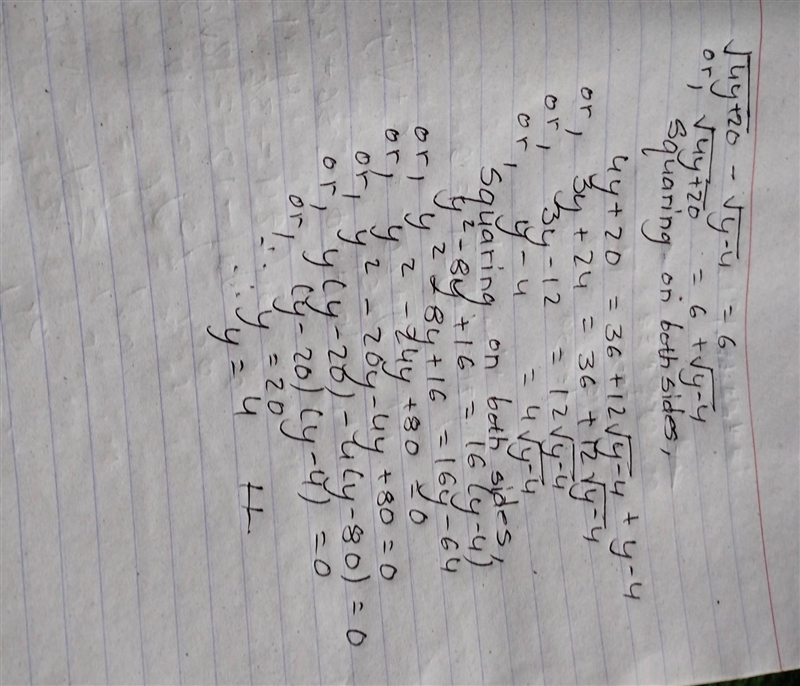 √4y+20 - √y-4 = 6
or, √4y+20 = 6 + √y-4
Squaring on both sides,
4y+20 = 36 + 12√y-4 + y-4
or, 3y + 24 = 36 + 12√y-4
or, 3y-12 = 12√y-4
or, y-4 = 4√y-4
Squaring on both sides,
y² - 8y + 16 = 16(y-4)
or, y² - 8y + 16 = 16y - 64
or, y² - 24y + 80 = 0
or, y² - 20y - 4y + 80 = 0
or, y(y-20) - 4(y-80) = 0
or, (y-20)(y-4) = 0
∴ y = 20
∴ y = 4